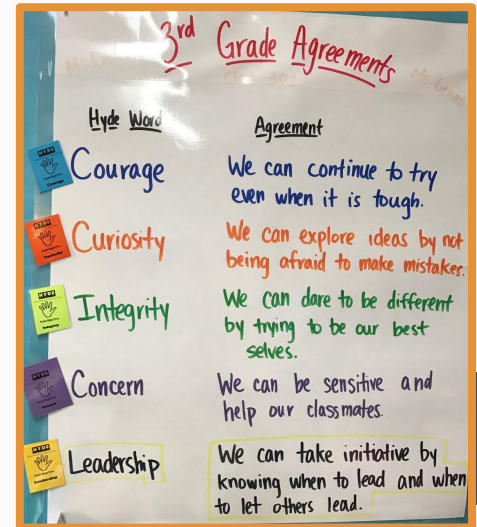 3rd Grade Agreements
Hyde Word
Agreement
HYDE
Courage
Courage
We can continue to try
even when it is tough.
HYDE
Curiosity
Curiosity
We can explore ideas by not
being afraid to make mistakes.
HYDE
Integrity
Integrity
We can dare to be different
by trying to be our best
selves.
HYDE
Concern
We can be sensitive and
help our classmates.
HYDE
Leadership
Leadership
We can take initiative by
knowing when to lead and when
to let others lead.